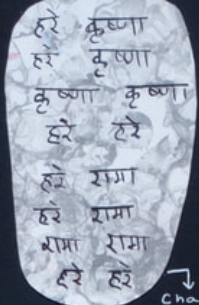 हरे कृष्णा
हरे कृष्णा
कृष्णा कृष्णा
हरे हरे
हरे रामा
हरे रामा
रामा रामा
हरे हरे
cha